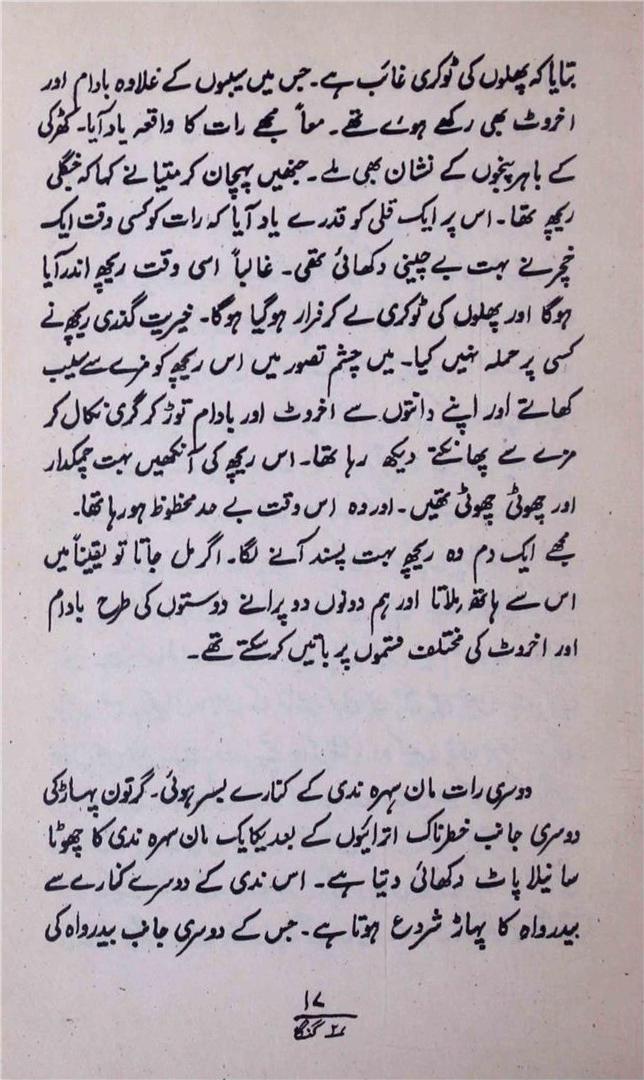 بتایا کہ پھلوں کی ٹوکری غائب ہے۔ جس میں سیبوں کے علاوہ بادام اور
اخروٹ بھی رکھے ہوئے تھے۔ معاً مجھے رات کا واقعہ یاد آیا۔ کھڑکی
کے باہر پنجوں کے نشان بھی ملے۔ جنھیں پہچان کر متیا نے کہا کہ جنگلی
ریچھ تھا۔ اس پر ایک قلی کو قدرے یاد آیا کہ رات کو کسی وقت ایک
خچر نے بہت بے چینی دکھائی تھی۔ غالباً اسی وقت ریچھ اندر آیا
ہوگا اور پھلوں کی ٹوکری لے کر فرار ہوگیا ہوگا۔ خیریت گذری ریچھ نے
کسی پر حملہ نہیں کیا۔ میں چشم تصور میں اس ریچھ کو مزے سے سیب
کھاتے اور اپنے دانتوں سے اخروٹ اور بادام توڑ کر گری نکال کر
مزے سے پھانکتے دیکھ رہا تھا۔ اس ریچھ کی آنکھیں بہت چمکدار
اور چھوٹی چھوٹی تھیں۔ اور وہ اس وقت بے حد محظوظ ہو رہا تھا۔
مجھے ایک دم وہ ریچھ بہت پسند آنے لگا۔ اگر مل جاتا تو یقیناً میں
اس سے ہاتھ ملاتا اور ہم دونوں دو پرانے دوستوں کی طرح بادام
اور اخروٹ کی مختلف قسموں پر باتیں کرسکتے تھے۔
دوسری رات مان سہرہ ندی کے کنارے بسر ہوئی۔ گرتون پہاڑ کی
دوسری جانب خطرناک اترائیوں کے بعد یکایک مان سہرہ ندی کا چھوٹا
سا نیلا پاٹ دکھائی دیتا ہے۔ اس ندی کے دوسرے کنارے سے
بیدرواہ کا پہاڑ شروع ہوتا ہے۔ جس کے دوسری جانب بیدرواہ کی
۱۷
گنگا